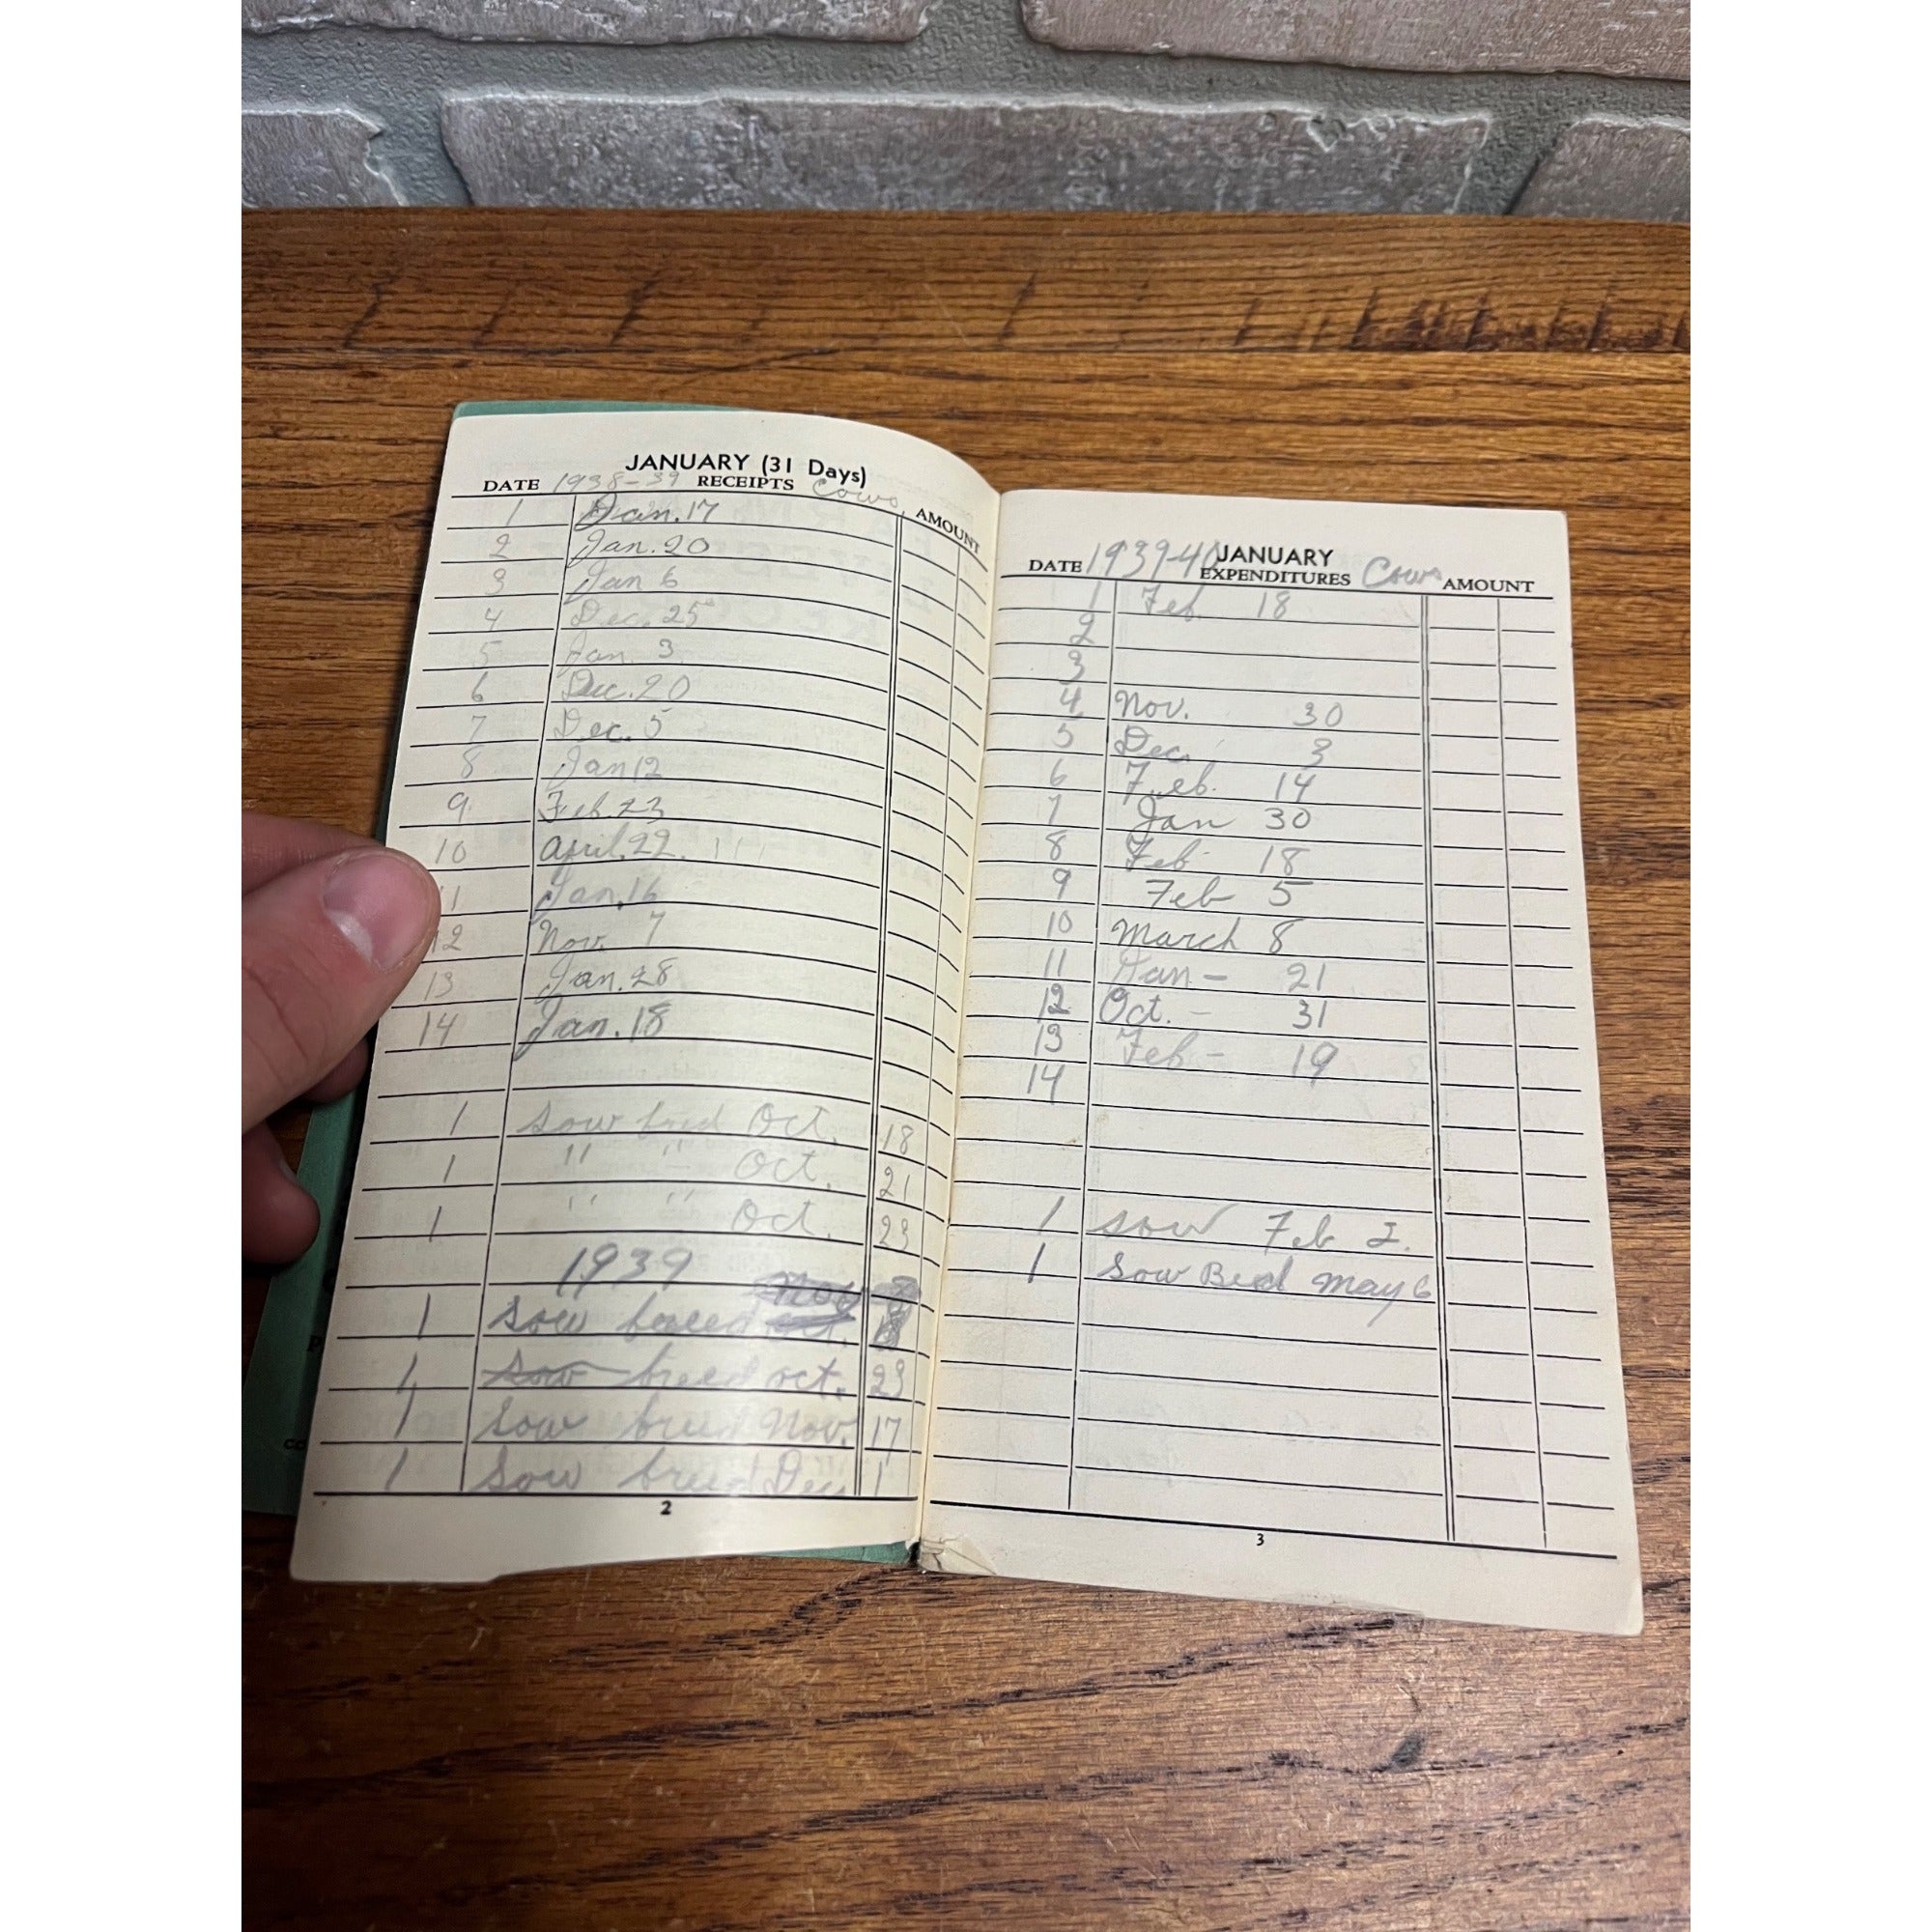 JANUARY (31 Days)
DATE 1938-39 RECEIPTS Cows AMOUNT
1 Jan. 17
2 Jan. 20
3 Jan 6
4 Dec. 25
5 Jan. 3
6 Dec. 20
7 Dec. 5
8 Jan 12
9 Feb. 23
10 April. 22.
11 Jan. 16
12 Nov. 7
13 Jan. 28
14 Jan. 18
1 sow bred Oct. 18
1 " " Oct. 21
1 " " Oct. 23
1939 Nov 8
1 sow breed oct. 18
1 sow breed oct. 23
1 sow breed Nov. 17
1 sow breed Dec 1
2
JANUARY
DATE 1939-40 EXPENDITURES Cows AMOUNT
1 Feb. 18
2
3
4 Nov. 30
5 Dec. 3
6 Feb. 14
7 Jan 30
8 Feb 18
9 Feb 5
10 March 8
11 Jan - 21
12 Oct. - 31
13 Feb - 19
14
1 sow Feb 2.
1 Sow Bred May 6
3